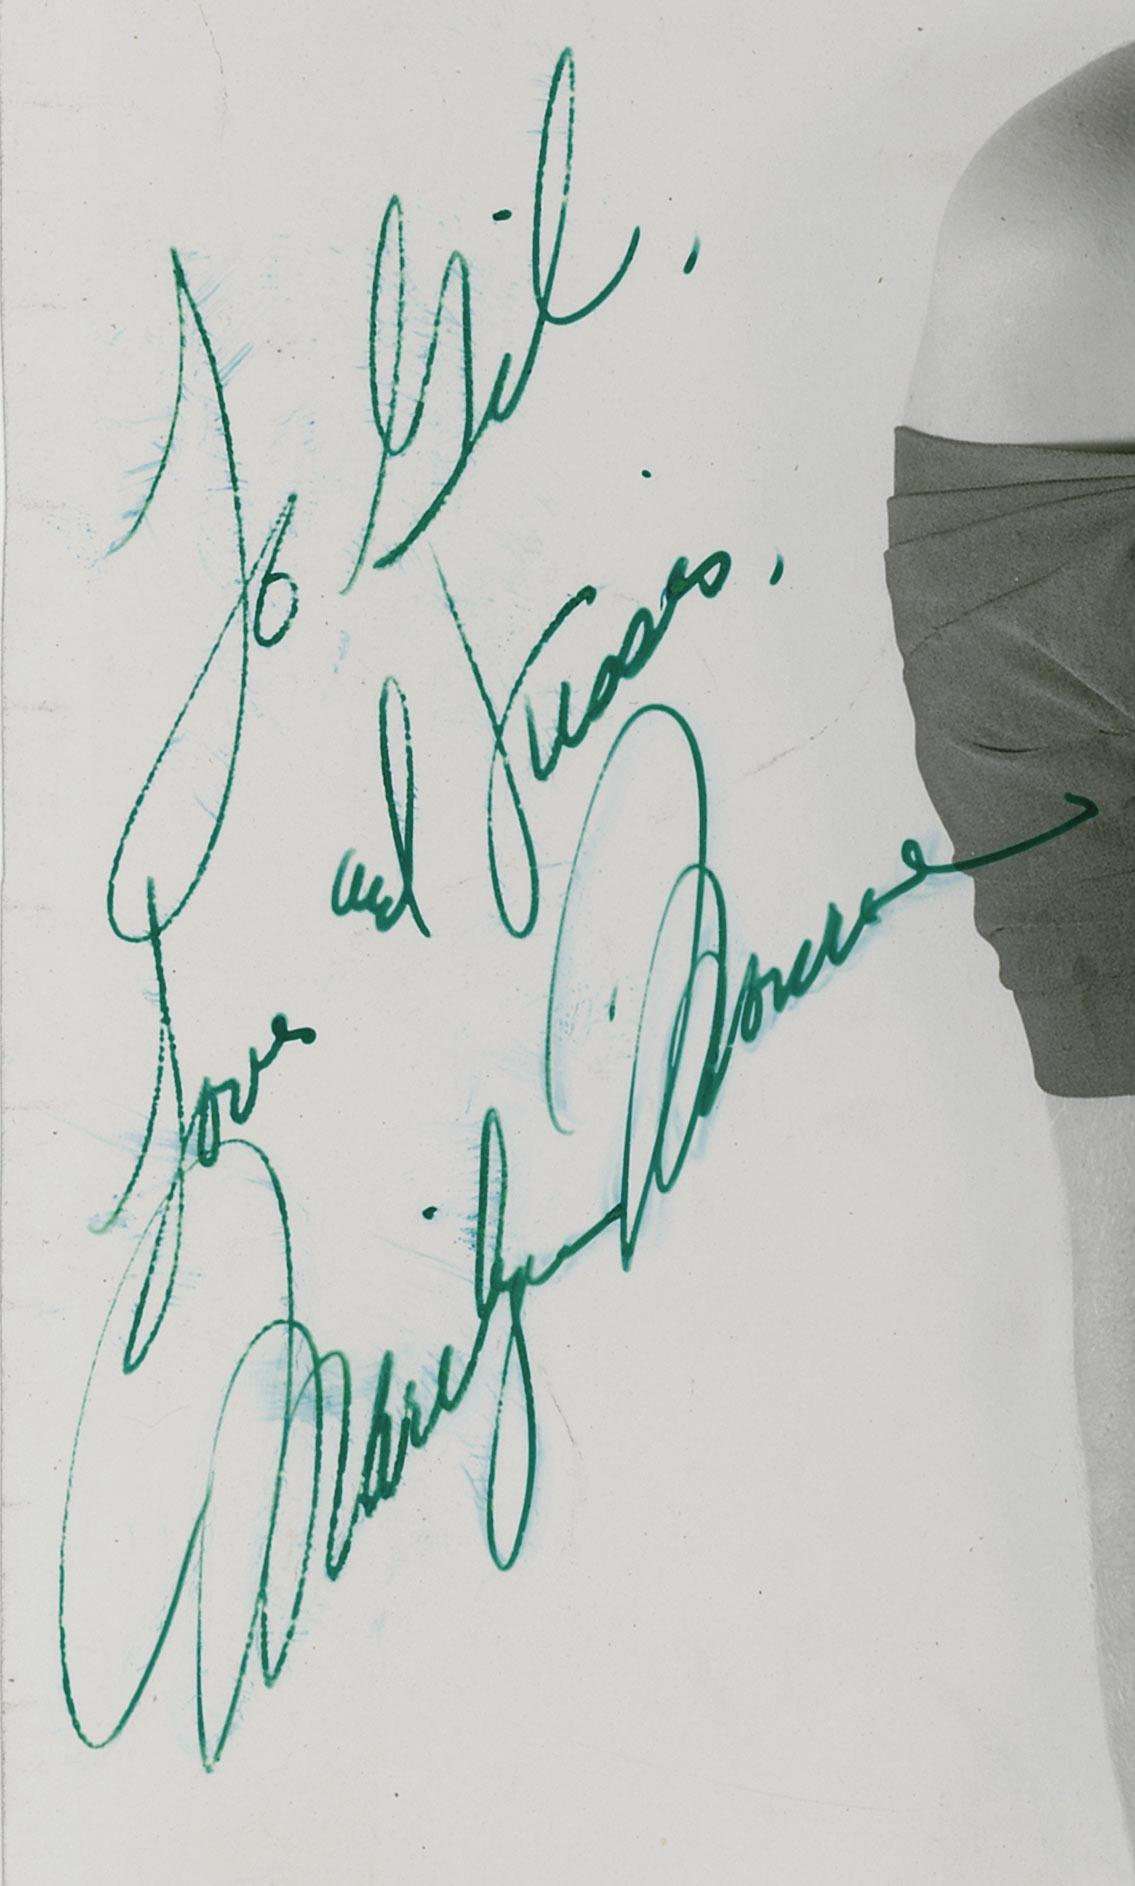 To Gil,
Love and Kisses,
Marilyn Monroe